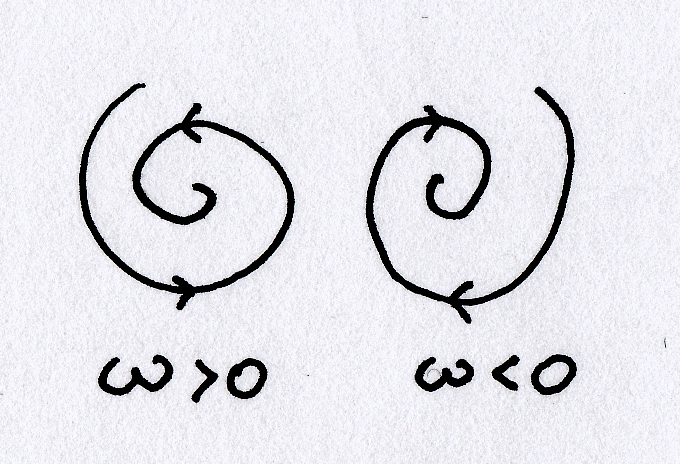 ω > 0 ω < 0